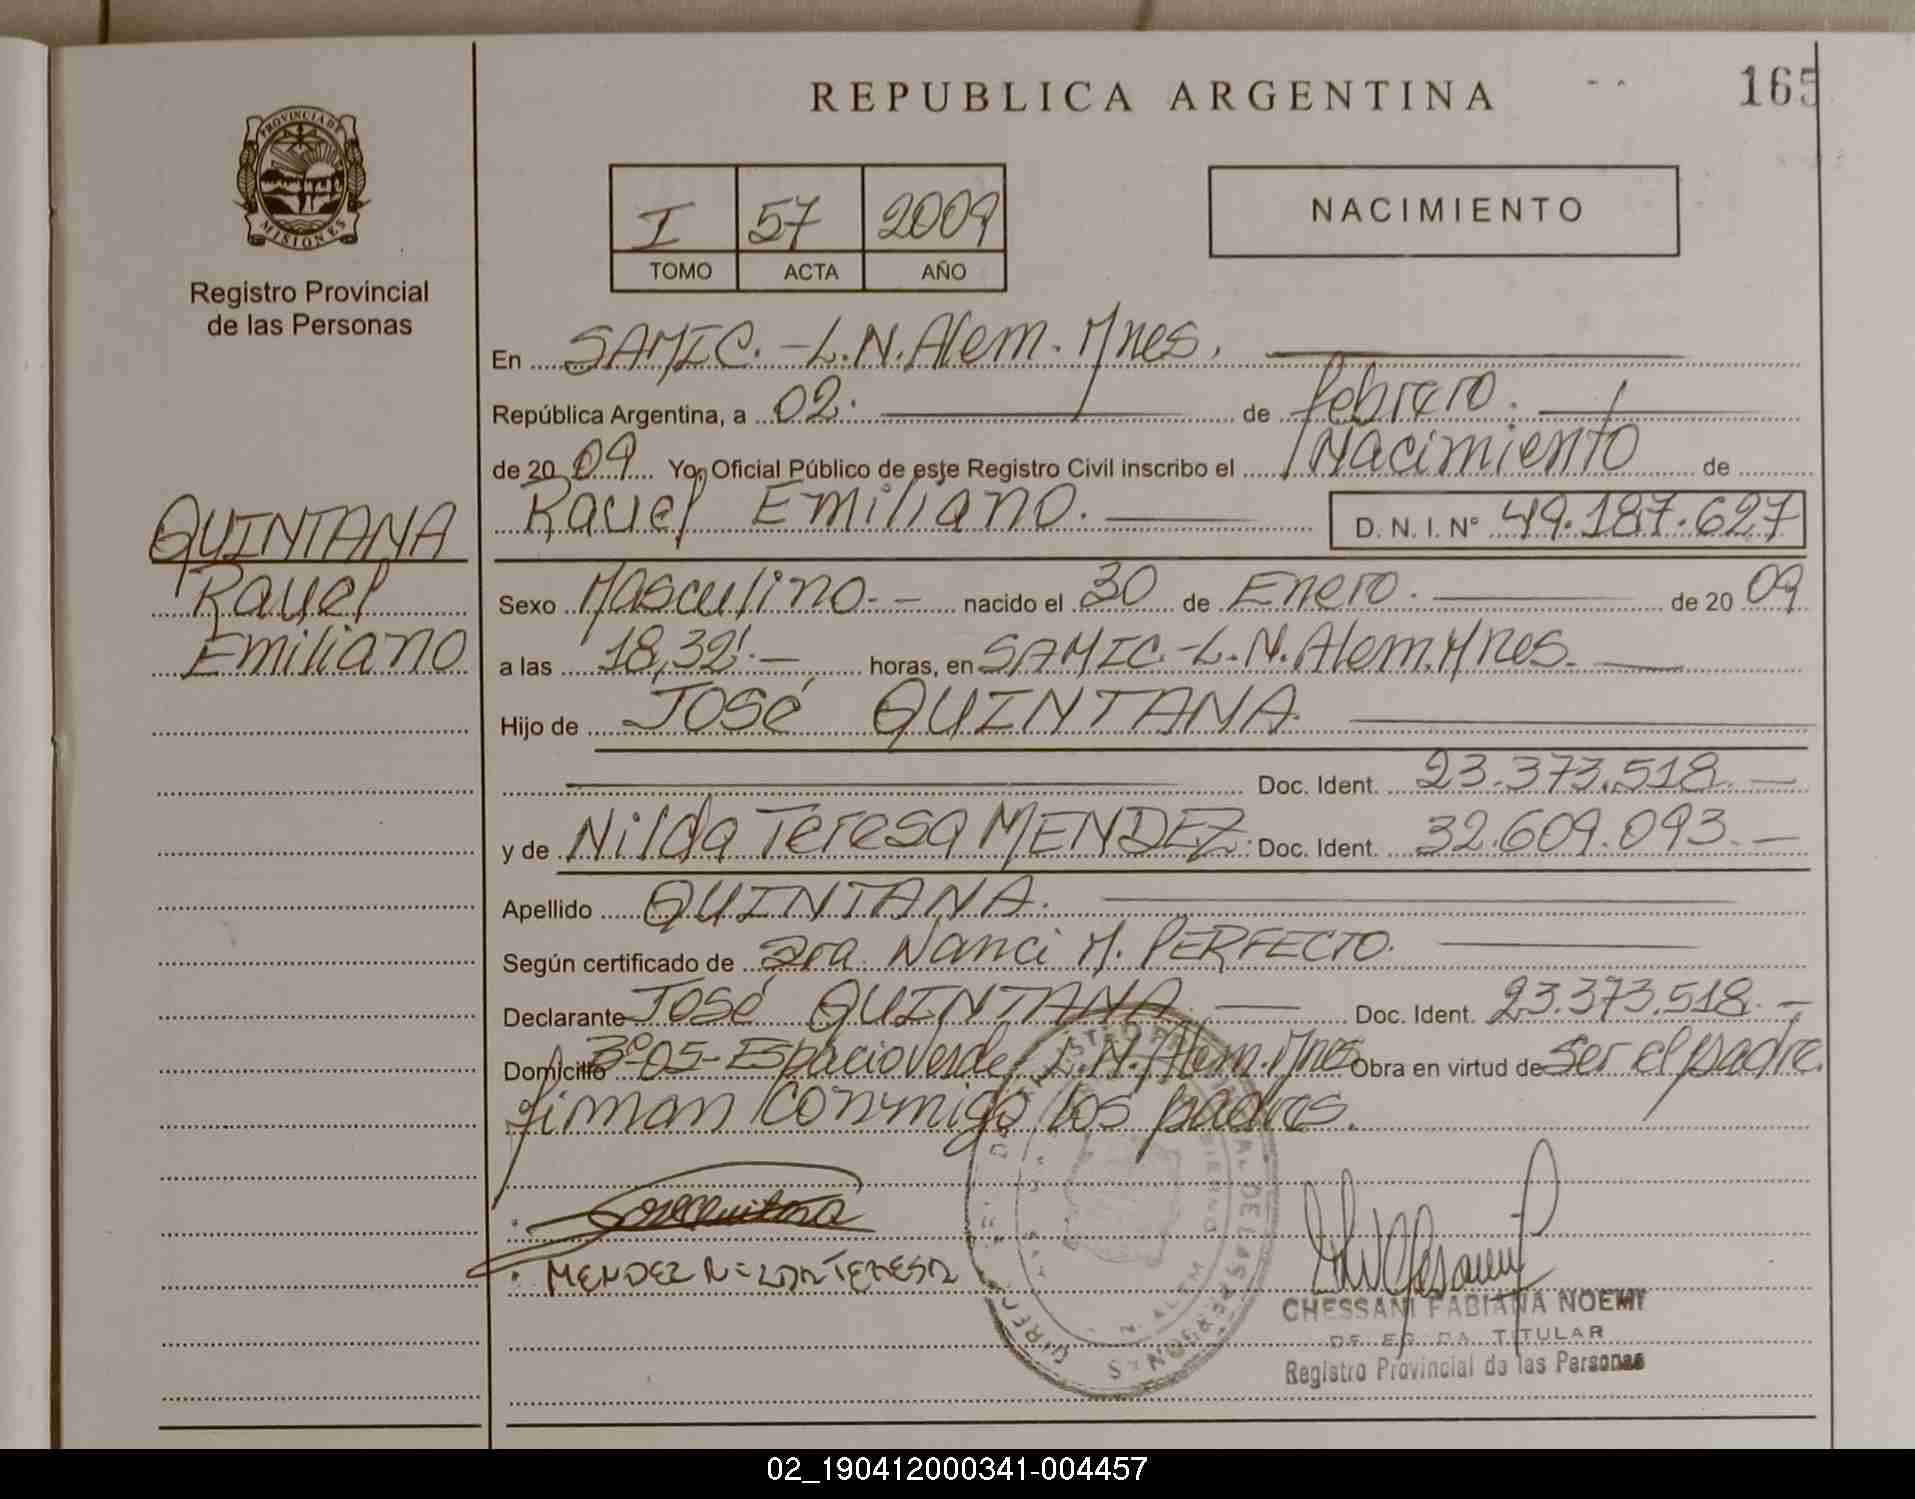 REPUBLICA ARGENTINA
165
PROVINCIA DE
MISIONES
Registro Provincial
de las Personas
I 57 2009
TOMO ACTA AÑO
NACIMIENTO
En SAMIC.-L.N.Alem.Mnes.
República Argentina, a 02. de febrero.
de 2009 Yo, Oficial Público de este Registro Civil inscribo el Nacimiento de
Rauel Emiliano. D. N. I. Nº 49.187.627
QUINTANA
Rauel
Emiliano
Sexo Masculino.- nacido el 30 de Enero. de 2009
a las 18,32'.- horas, en SAMIC.-L.N.Alem.Mnes.
Hijo de José QUINTANA.
Doc. Ident. 23.373.518.-
y de Nilda Teresa MENDEZ. Doc. Ident. 32.609.093.-
Apellido QUINTANA.
Según certificado de Dra. Nanci M. PERFECTO.
Declarante José QUINTANA. Doc. Ident. 23.373.518.-
Domicilio 3º05-Espacio Verde L.N.Alem.Mnes Obra en virtud de Ser el padre.
firman conmigo los padres.
MENDEZ NILDA TERESA
CHESSANI FABIANA NOEMI
TITULAR
Registro Provincial de las Personas
02_190412000341-004457